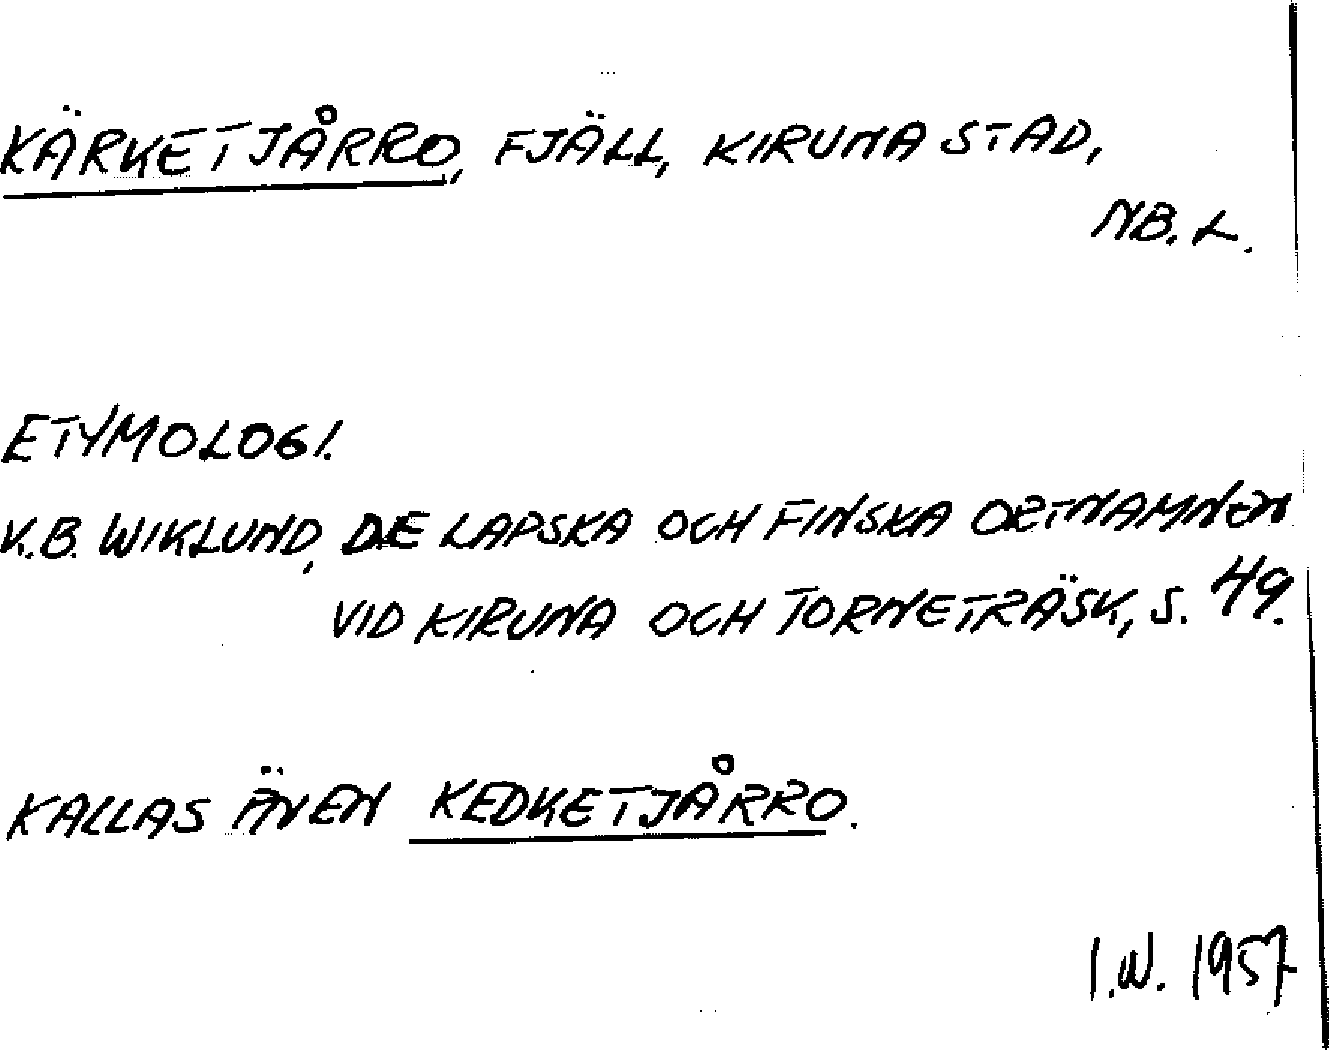 KÄRKETJÅRRO, FJÄLL, KIRUNA STAD,
NB. L.
ETYMOLOGI.
K.B. WIKLUND, DE LAPSKA OCH FINSKA ORTNAMNEN
VID KIRUNA OCH TORNETRÄSK, S. 49.
KALLAS ÄVEN KEDKETJÅRRO.
I.W. 1957